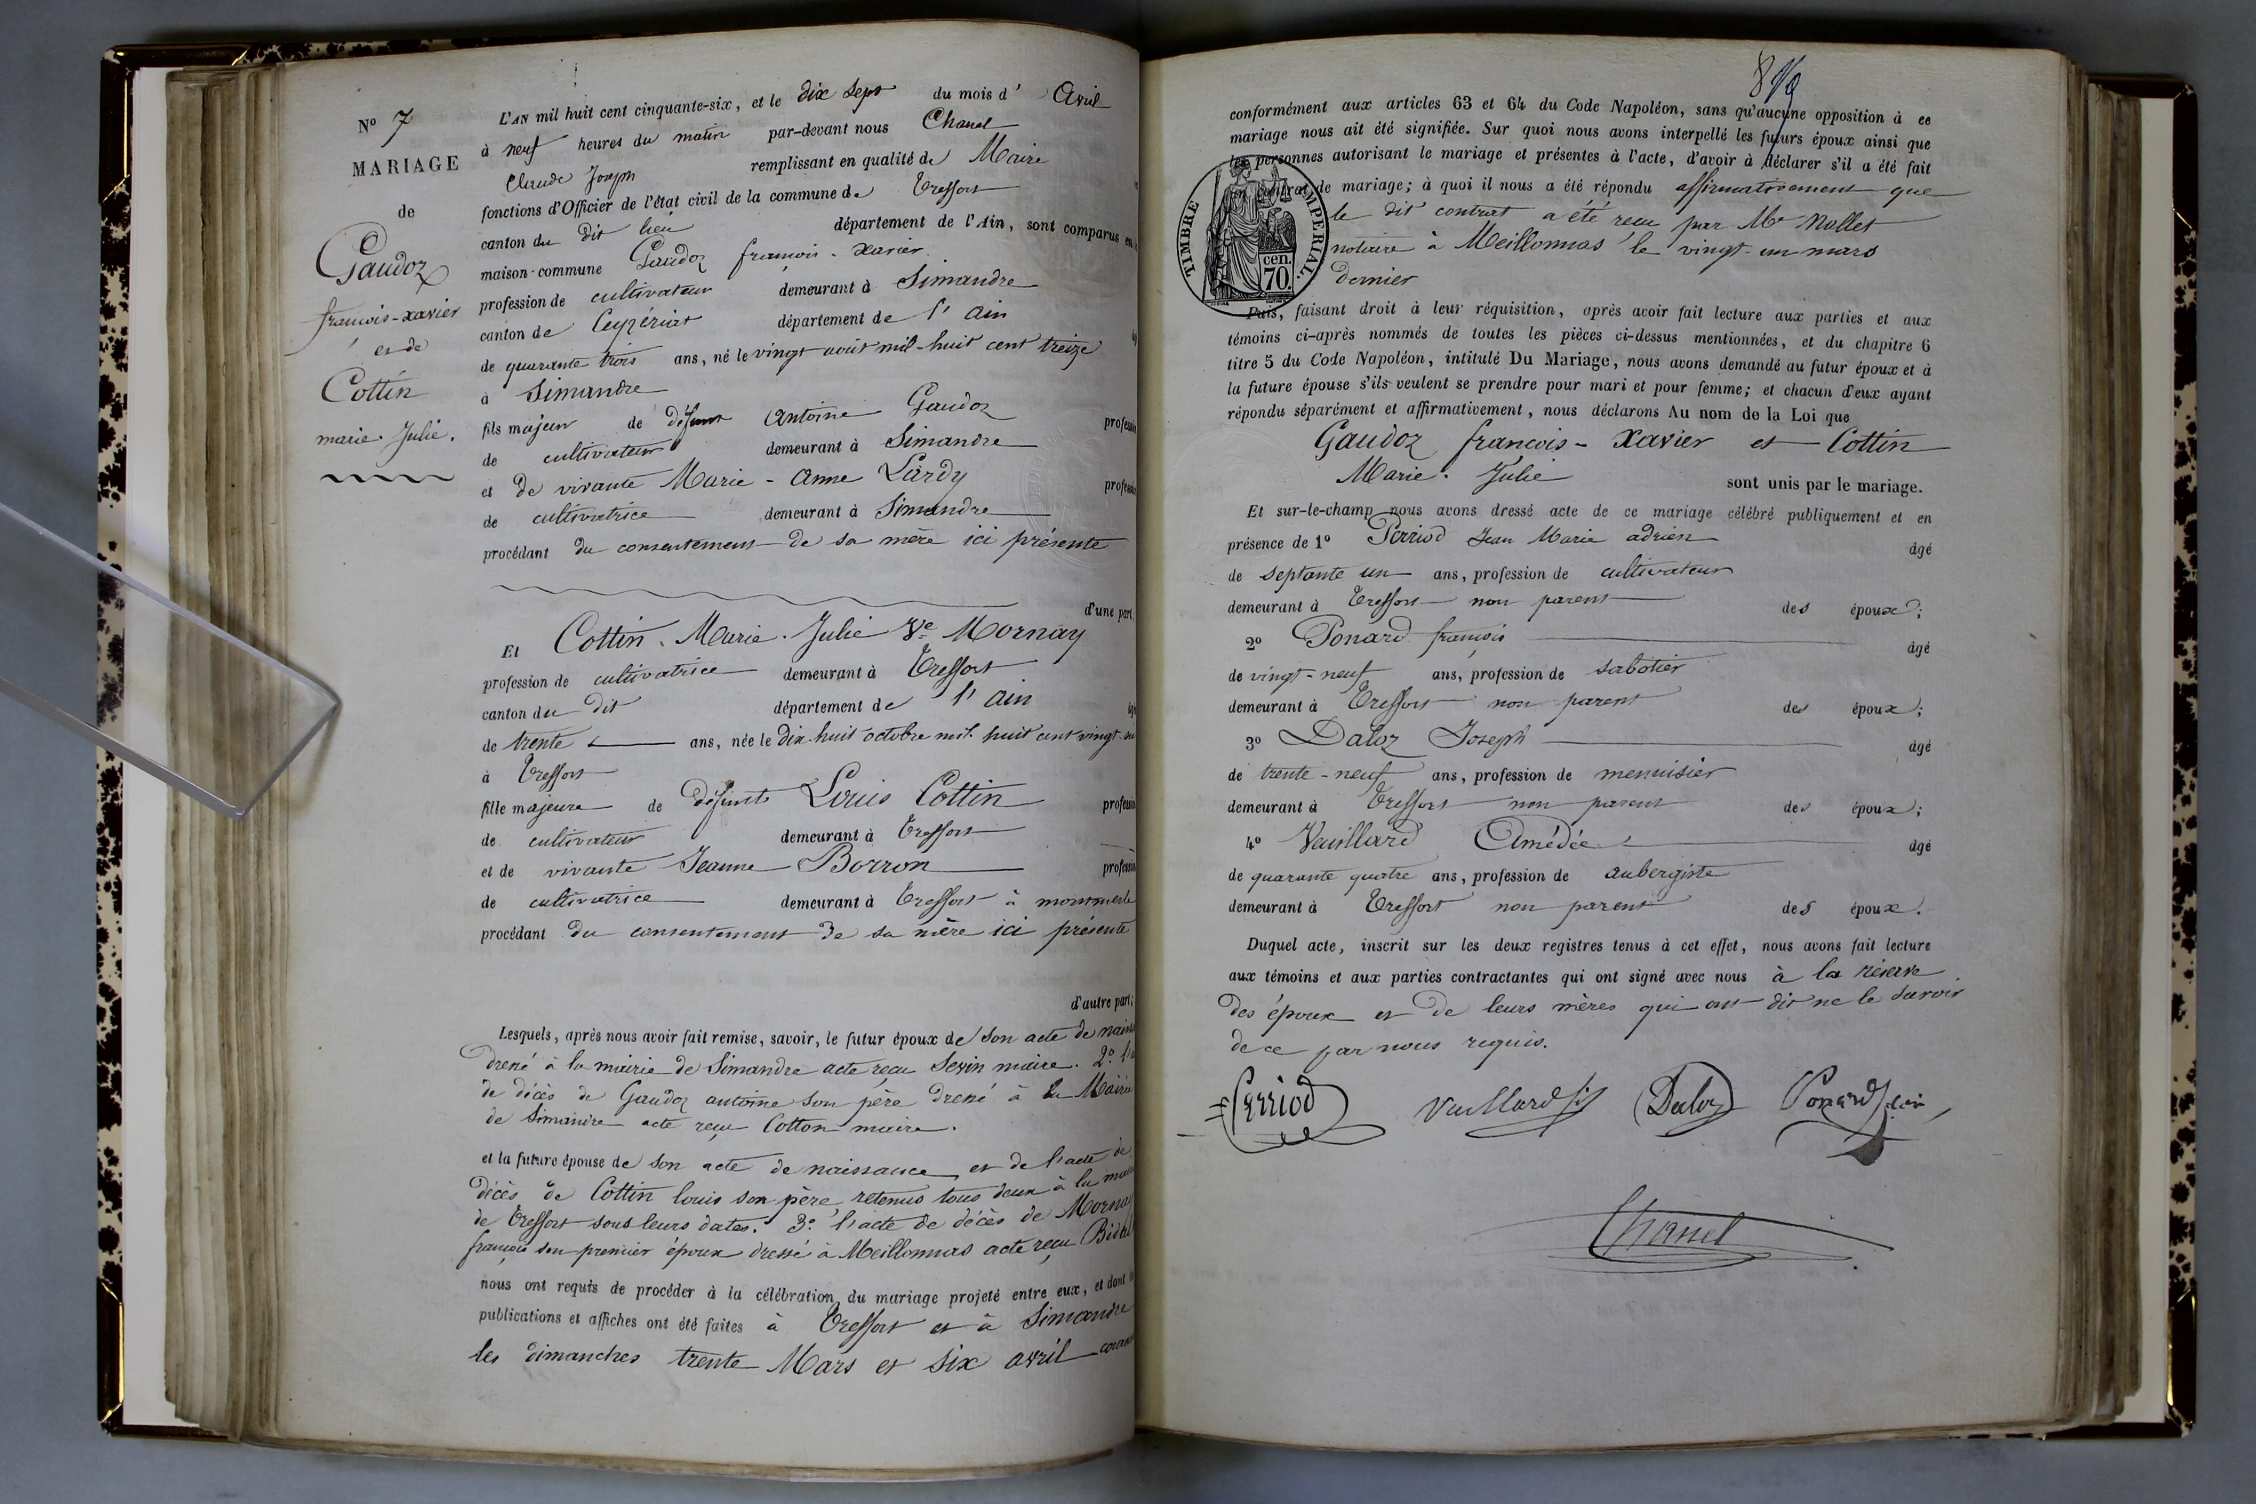 N° 7
MARIAGE
de
Gaudoz
francois-xavier
et de
Cottin
marie Julie.
L'AN mil huit cent cinquante-six, et le dix sept du mois d' Avril
à neuf heures du matin par-devant nous Chanel
Claude Joseph remplissant en qualité de Maire
fonctions d'Officier de l'état civil de la commune de Treffort
canton du dit lieu département de l'Ain, sont comparus en
maison commune Gaudoz francois-xavier
profession de cultivateur demeurant à Simandre
canton de Ceyzériat département de l'ain
de quarante trois ans, né le vingt août mil-huit cent treize
à Simandre
fils majeur de défunt Antoine Gaudoz
de cultivateur demeurant à Simandre
et de vivante Marie-Anne Lardy
de cultivatrice demeurant à Simandre
procédant du consentement de sa mère ici présente
d'une part,
Et Cottin Marie Julie Ve Mornay
profession de cultivatrice demeurant à Treffort
canton du dit département de l'ain
de trente ans, née le dix-huit octobre mil huit cent vingt
à Treffort
fille majeure de défunt Louis Cottin
de cultivateur demeurant à Treffort
et de vivante Jeanne Borron
de cultivatrice demeurant à Treffort à montmerle
procédant du consentement de sa mère ici présente
d'autre part;
Lesquels, après nous avoir fait remise, savoir, le futur époux de son acte de
à la mairie de Simandre acte reçu Sevin maire. 2°
de décès de Gaudoz antoine son père à la Mairie
de Simandre acte reçu Cotton maire.
et la future épouse de son acte de naissance et de l'acte de
décès de Cottin louis son père retenus tous deux à la
de Treffort sous leurs dates. 3° l'acte de décès de Mornay
françois son premier époux dressé à Meillonnas acte reçu
nous ont requis de procéder à la célébration du mariage projeté entre eux, et dont
publications et affiches ont été faites à Treffort et à Simandre
les dimanches trente Mars et six avril
conformément aux articles 63 et 64 du Code Napoléon, sans qu'aucune opposition à ce
mariage nous ait été signifiée. Sur quoi nous avons interpellé les futurs époux ainsi que
les personnes autorisant le mariage et présentes à l'acte, d'avoir à déclarer s'il a été fait
contrat de mariage; à quoi il nous a été répondu affirmativement que
le dit contrat a été reçu par Me Mollet
notaire à Meillonnas le vingt-un mars
dernier
TIMBRE IMPERIAL.
cen.
70.
Puis, faisant droit à leur réquisition, après avoir fait lecture aux parties et aux
témoins ci-après nommés de toutes les pièces ci-dessus mentionnées, et du chapitre 6
titre 5 du Code Napoléon, intitulé Du Mariage, nous avons demandé au futur époux et à
la future épouse s'ils veulent se prendre pour mari et pour femme; et chacun d'eux ayant
répondu séparément et affirmativement, nous déclarons Au nom de la Loi que
Gaudoz francois-Xavier et Cottin
Marie Julie sont unis par le mariage.
Et sur-le-champ nous avons dressé acte de ce mariage célébré publiquement et en
présence de 1° Perriod Jean Marie adrien âgé
de septante un ans, profession de cultivateur
demeurant à Treffort non parent des époux;
2° Ponard françois âgé
de vingt-neuf ans, profession de sabotier
demeurant à Treffort non parent des époux;
3° Daloz Joseph âgé
de trente-neuf ans, profession de menuisier
demeurant à Treffort non parent des époux;
4° Vuillard Amédée âgé
de quarante quatre ans, profession de aubergiste
demeurant à Treffort non parent des époux.
Duquel acte, inscrit sur les deux registres tenus à cet effet, nous avons fait lecture
aux témoins et aux parties contractantes qui ont signé avec nous à la réserve
des époux et de leurs mères qui ont dit ne le savoir
de ce par nous requis.
Perriod Vuillard Daloz Ponard
Chanel